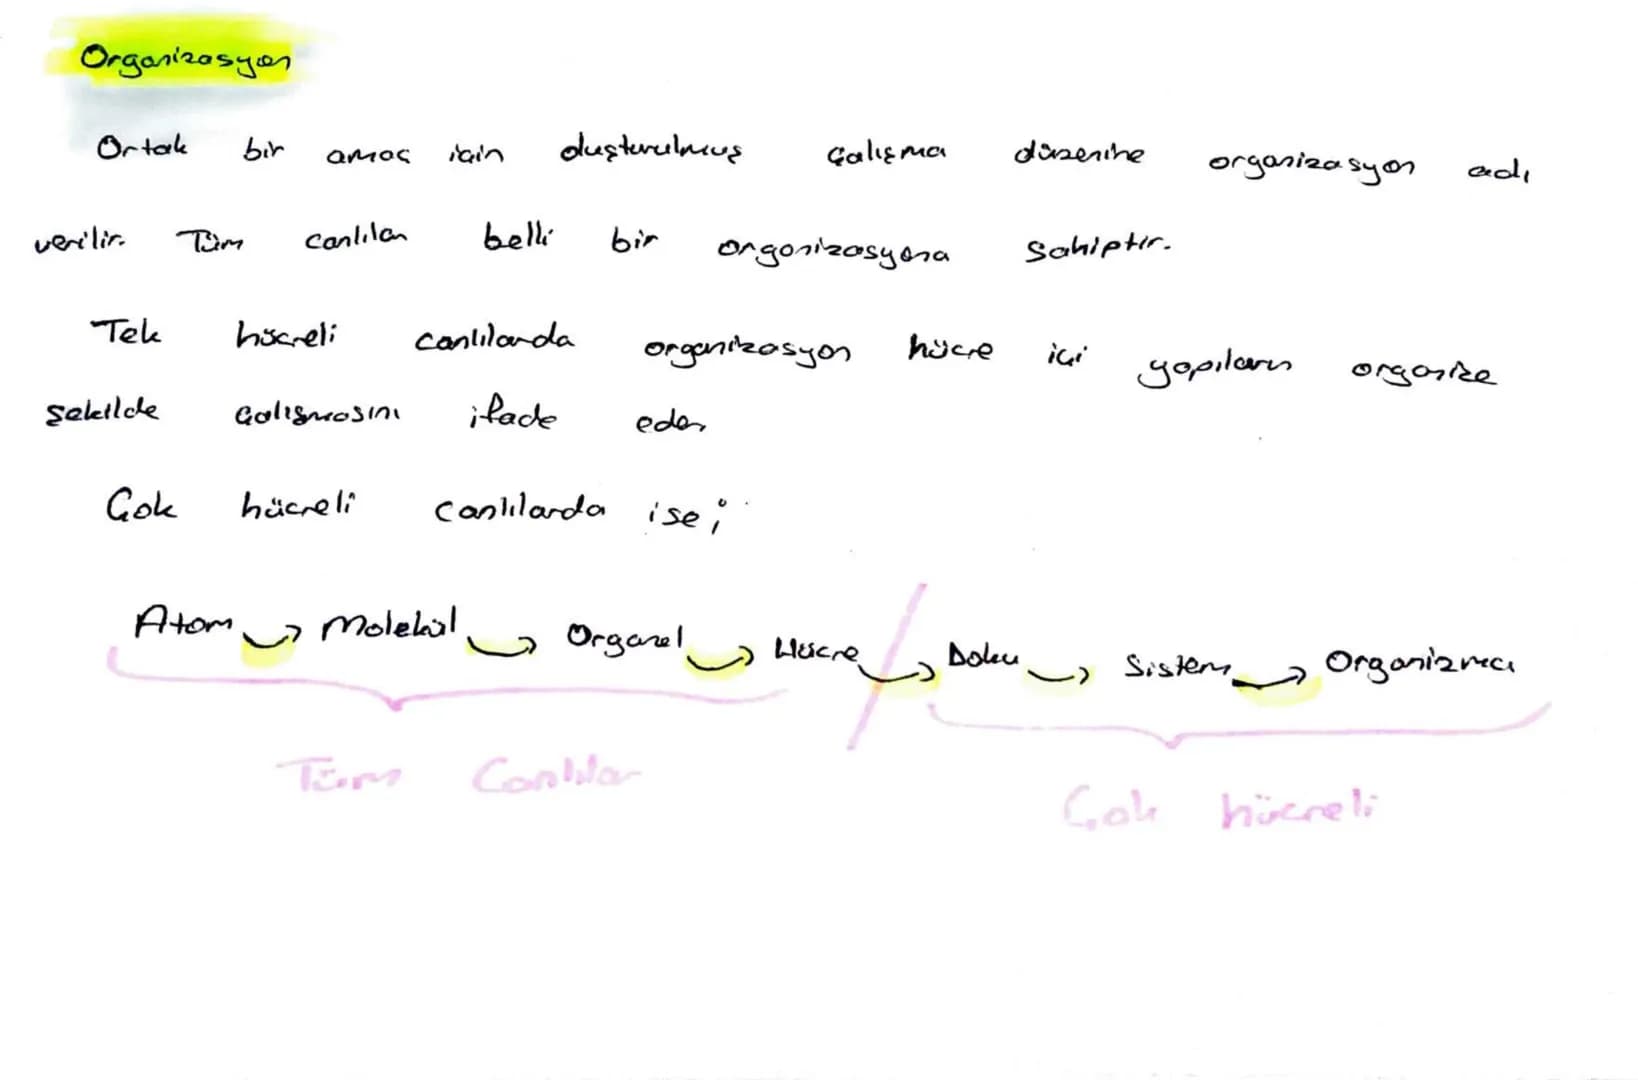 Organizasyon
Ortak bir amaç için oluşturulmuş çalışma düzenine organizasyon adı
verilir. Tüm canlılar belli bir organizasyona sahiptir.
Tek hücreli canlılarda organizasyon hücre içi yapıların organize
şekilde çalışmasını ifade eder
Çok hücreli canlılarda ise;
Atom → Molekül → Organel → Hücre → Doku → Sistem → Organizma
Tüm Canlılar
Çok hücreli